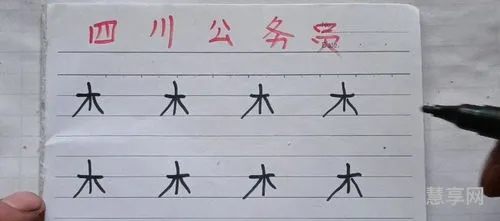 四川公务员
木 木 木 木
木 木 木 木
慧享网